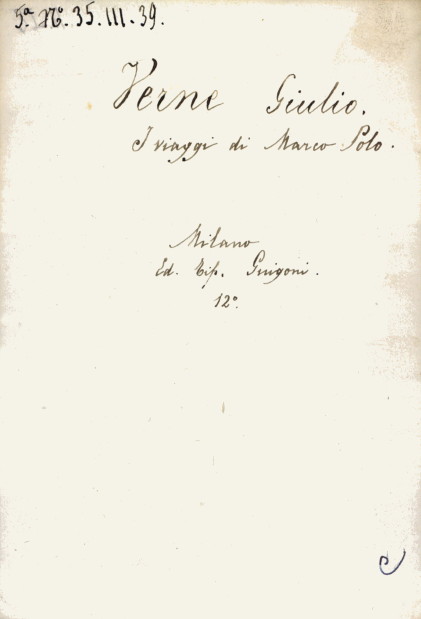 5.ª Nº. 35.III.39.
Verne Giulio.
I viaggi di Marco Polo.
Milano
Ed. Tip. Guigoni.
12º.